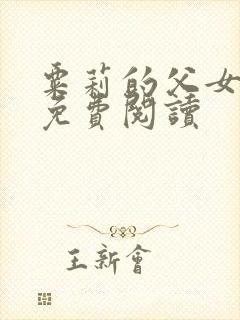 粟莉的父女
免費閱讀
王新會